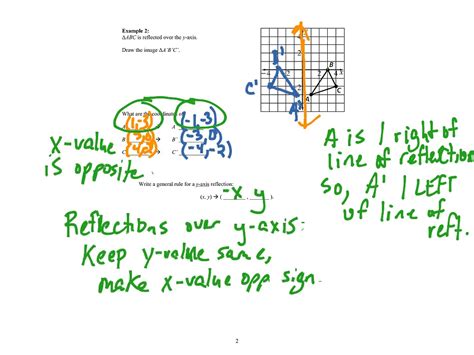 Example 2:
ΔABC is reflected over the y-axis.
Draw the image ΔA'B'C'.
B' B
C' C
A' A
-4 2 4 x
What are the coordinates
(1,-3) (-1,-3)
(3,0) (-3,0)
B → B'
(4,-2) (-4,-2)
C → C'
x-value
is opposite
Write a general rule for a y-axis reflection:
(x, y) → ( -x , y )
A is 1 right of
line of reflection
so, A' 1 LEFT
of line of
refl.
Reflections over y-axis:
Keep y-value same,
make x-value opp sign.
2